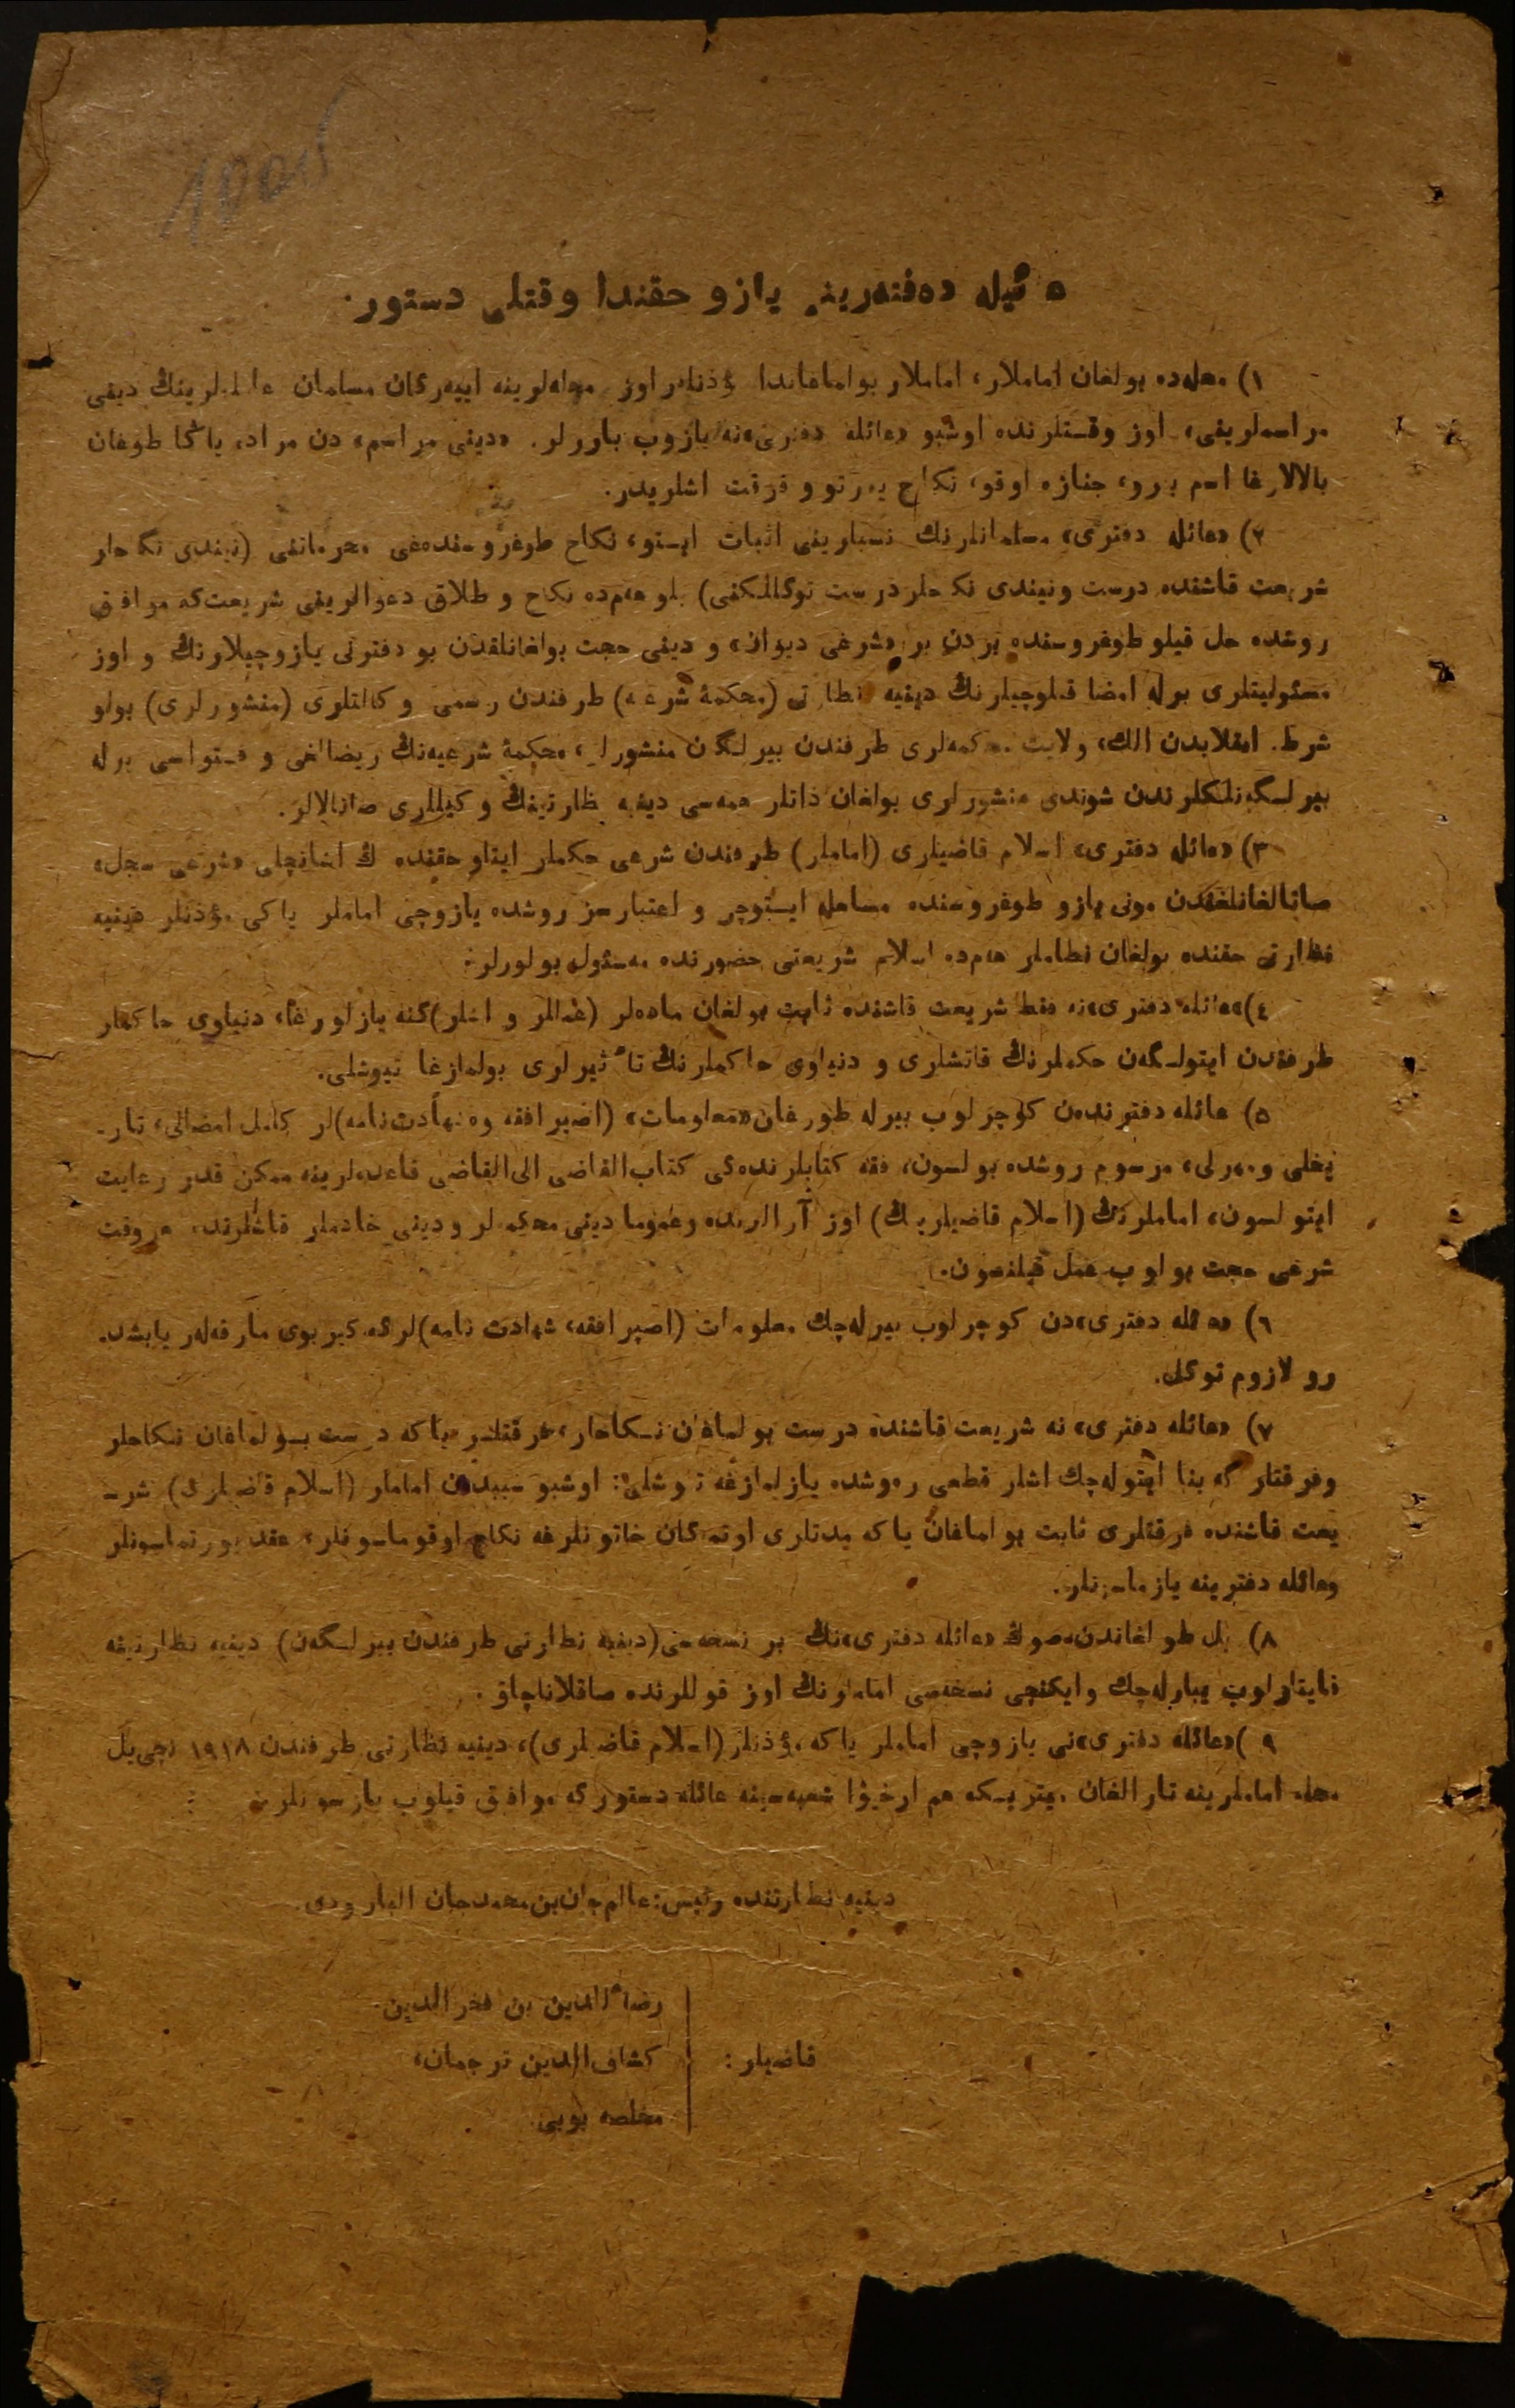 1000
عائیله دەفتەرینە یازو حقندا وقتلی دستور.
١) محلەدە بولغان اماملار، اماملار بولماغاندا مؤذنلر اوز محلەلرینه ایبەرگان مسلمان عائلەلرینڭ دینی
مراسملرینی، اوز وقتلرنده اوشبو «عائله دفتری»نه یازوب بارورلر. «دینی مراسم» دن مراد، یاڭا طوغان
بالالارغا اسم بیرو، جنازه اوقو، نکاح یورتو و فرقت اشلریدر.
٢) «عائله دفتری» مسلمانلرنڭ نسبلرینی اثبات ایستو، نکاح طوغروسندەغی محرماتنی (نیندی نکاحلر
شریعت قاشنده درست ونیندی نکاحلر درست توگللکنی) بلو هەم ده نکاح و طلاق دعوالرینی شریعت‌که موافق
روشده حل قیلو طوغروسنده بردن بر «شرعی دیوان» و دینی حجت بولغانلقدن بو دفترنی یازوچیلارنڭ و اوز
مسئولیتلری برله امضا قیلوچیلرنڭ دینیه نظارتی (محکمهٔ شرعیه) طرفندن رسمی وکالتلری (منشورلری) بولو
شرط. انقلابدن الك، ولایت محکمەلری طرفندن بیرلگان منشورلر، محکمهٔ شرعیەنڭ ریضالغی و فتواسی برله
بیرلگەنلکلرندن شوندی منشورلری بولغان ذاتلر همەسی دینیه نظارتینڭ وکیللری صانالالر.
٣) «عائله دفتری» اسلام قاضیلری (اماملر) طرفندن شرعی حکملر ایتلو حقنده ڭ اشانچلی «شرعی سجل»
صانالغانلقدن مونی یازو طوغروسنده مساهله ایستوچی و اعتبارسز روشده یازوچی اماملر یاکی مؤذنلر دینیه
نظارتی حقنده بولغان نظاملر هەم ده اسلام شریعتی حضورنده مسئول بولورلر.
٤) «عائله دفتری»نه فقط شریعت قاشنده ثابت بولغان مادەلر (عمللر و اشلر) گنه یازلورغا، دنیاوی حاکملر
طرفندن ایتولگەن حکملرنڭ قاتشلری و دنیاوی حاکملرنڭ تأثیرلری بولمازغا تیوشلی.
٥) عائله دفترندەن کوچرلوب بیرله طورغان «معلومات» (اصپرافقه و شهادت‌نامه)لر کامل امضالی، تار-
یخلی و مهرلی، مرسوم روشده بولسون، فقه کتابلرندەگی کتاب القاضی الی القاضی قاعدەلرینه ممکن قدر رعایت
ایتولسون، اماملرنڭ (اسلام قاضیلرینڭ) اوز آرالرنده وعموما دینی محکمەلر و دینی خادملر قاشلرنده هروقت
شرعی حجت بولوب عمل قیلنسون.
٦) «عائله دفتری»دن کوچرلوب بیرلەچك معلومات (اصپرافقه، شهادت نامه)لرگه کیربوی مارقەلەر یابشد-
رو لازوم توگل.
٧) «عائله دفتری» نه شریعت قاشنده درست بولماغان نکاحلر، فرقتلر یاکه درست بولماغان نکاحلر
وفرقتلر گه بنا ایتولەچك اشلر قطعی رەوشده یازلمازغه تیوشلی: اوشبو سببدن اماملر (اسلام قاضیلری) شر-
یعت قاشنده فرقتلری ثابت بولماغان یاکه عدتلری اوتمەگان خاتونلرغه نکاح اوقوماسونلر، عقد یورتماسونلر
وعائله دفترینه یازماسونلر.
٨) یل طولغاندن صوڭ «عائله دفتری»نڭ بر نسخەسنی (دینیه نظارتی طرفندن بیرلگەن) دینیه نظارتینه
قایتارلوب یبارلەچك و ایکنچی نسخەسی اماملرنڭ اوز قوللرنده صاقلاناچاق.
٩) «عائله دفتری»نی یازوچی اماملر یاکه مؤذنلر (اسلام قاضیلری)، دینیه نظارتی طرفندن ١٩١٨ نچی یل
محله اماملرینه تارالغان میتریکه هم ارخیوا شعبەسینه عائله دستورگه موافق قیلوب یازسونلر.
دینیه نظارتنده رئیس: عالم‌جان بن محمدجان البارودی.
رضاءالدین بن فخرالدین.
قاضیلر: کشاف‌الدین ترجمان،
مخلصه بوبی.